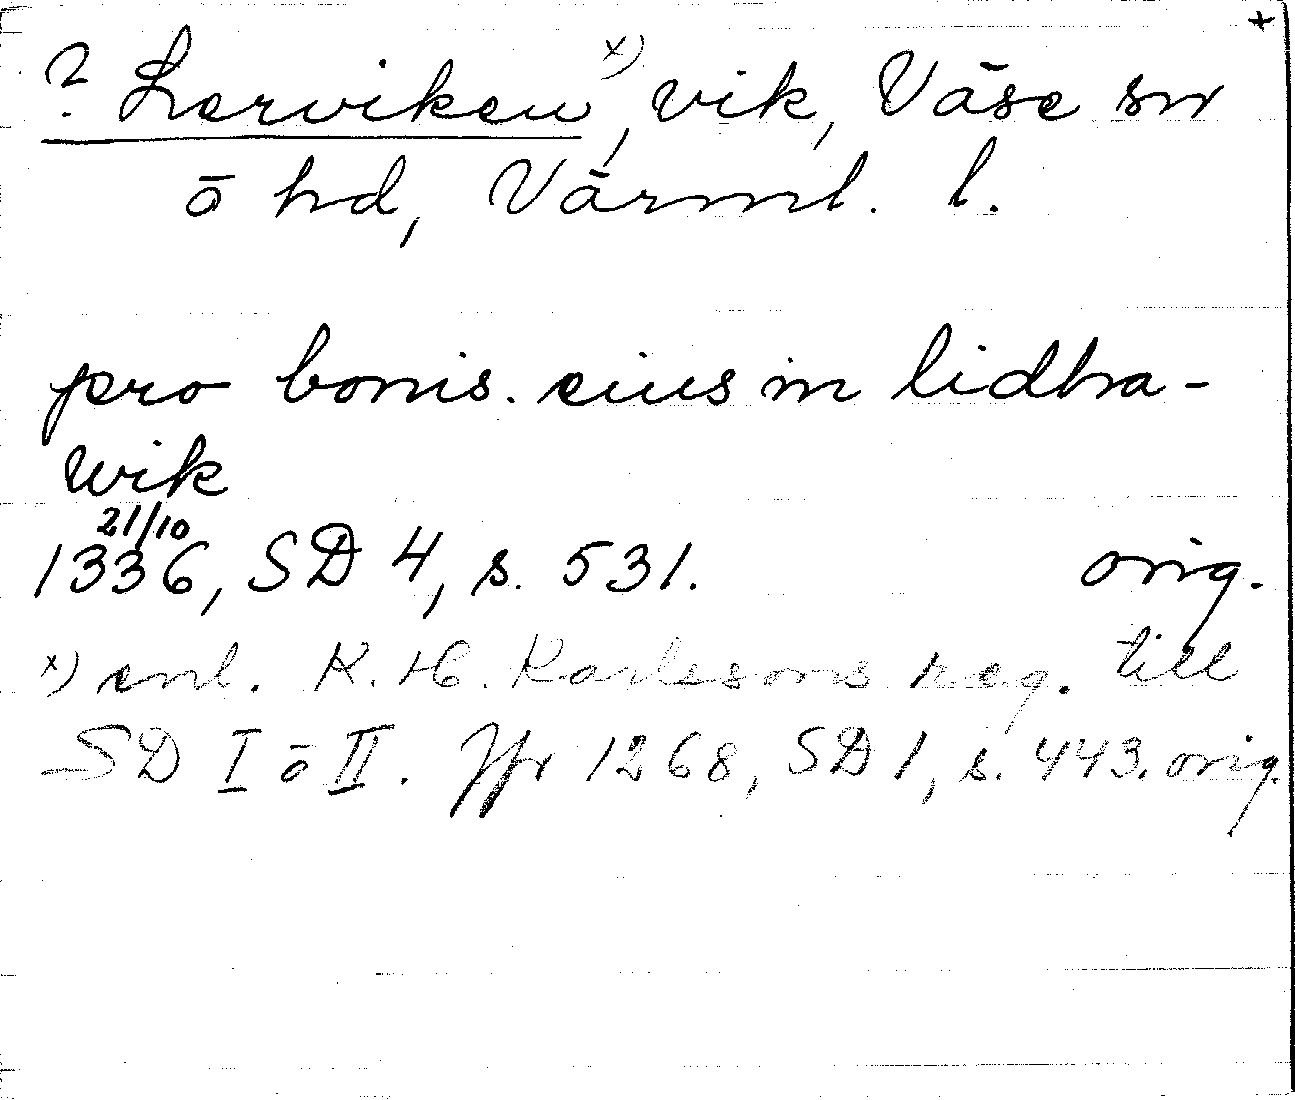 +
? Lerviken x), vik, Väse sn
o hd, Värml. l.
pro bonis. eius in lidhra-
wik
21/10
1336, SD 4, s. 531. orig.
x) enl. K. H. Karlssons reg. till
SD I o II. Jfr 1268, SD 1, s. 443. orig.